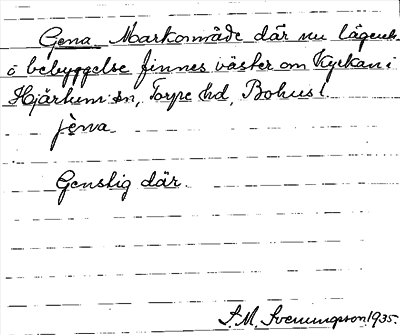 Gena Markområde där nu lägenh.
o bebyggelse finnes väster om Kyrkan i
Hjärtum sn, Torpe hd, Bohus l.
jèna
Genstig där.
S.M. Svenungsson 1935.